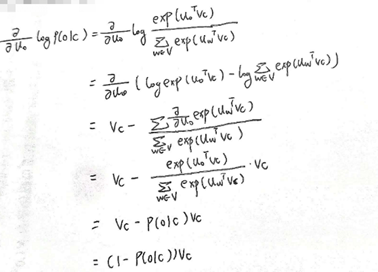 ∂/∂u₀ log P(o|c) = ∂/∂u₀ log exp(u₀ᵀVc) / Σ_{w∈V} exp(u_wᵀVc)
= ∂/∂u₀ (log exp(u₀ᵀVc) - log Σ_{w∈V} exp(u_wᵀVc))
= Vc - Σ ∂/∂u₀ exp(u_wᵀVc) / Σ_{w∈V} exp(u_wᵀVc)
= Vc - exp(u₀ᵀVc) / Σ_{w∈V} exp(u_wᵀVc) · Vc
= Vc - P(o|c)Vc
= (1 - P(o|c))Vc